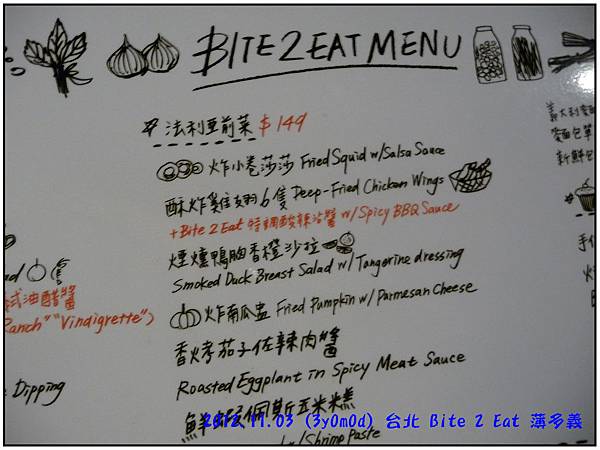 BITE 2 EAT MENU
法利豆前菜 $149
炸小卷莎莎 Fried Squid w/Salsa Sauce
酥炸雞翅6隻 Deep-Fried Chicken Wings
+Bite 2 Eat 特調酸辣沾醬 w/Spicy BBQ Sauce
煙燻鴨胸香橙沙拉
Smoked Duck Breast Salad w/Tangerine dressing
炸南瓜盅 Fried Pumpkin w/Parmesan Cheese
香烤茄子佐辣肉醬
Roasted Eggplant in Spicy Meat Sauce
鮮蝦佩斯玉米糕
w/Shrimp Paste
式油醋醬
Ranch" "Vindigrette")
Dipping
義大利麵
新鮮包
手
2012.11.03 (3y0m0d) 台北 Bite 2 Eat 薄多義